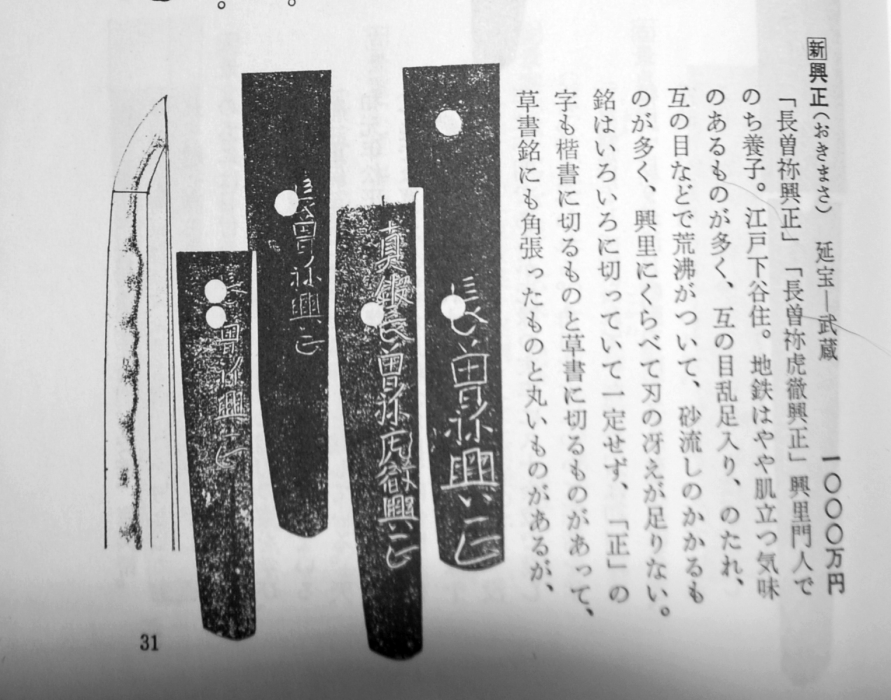 新 興正(おきまさ) 延宝―武蔵 一〇〇〇万円
「長曽祢興正」「長曽祢虎徹興正」興里門人で
のち養子。江戸下谷住。地鉄はやや肌立つ気味
のあるものが多く、互の目乱足入り、のたれ、
互の目などで荒沸がついて、砂流しのかかるも
のが多く、興里にくらべて刃の冴えが足りない。
銘はいろいろに切っていて一定せず、「正」の
字も楷書に切るものと草書に切るものがあって、
草書銘にも角張ったものと丸いものがあるが、
長曽祢興正
真鍛長曽祢虎徹興正
長曽祢興正
長曽祢興正
31